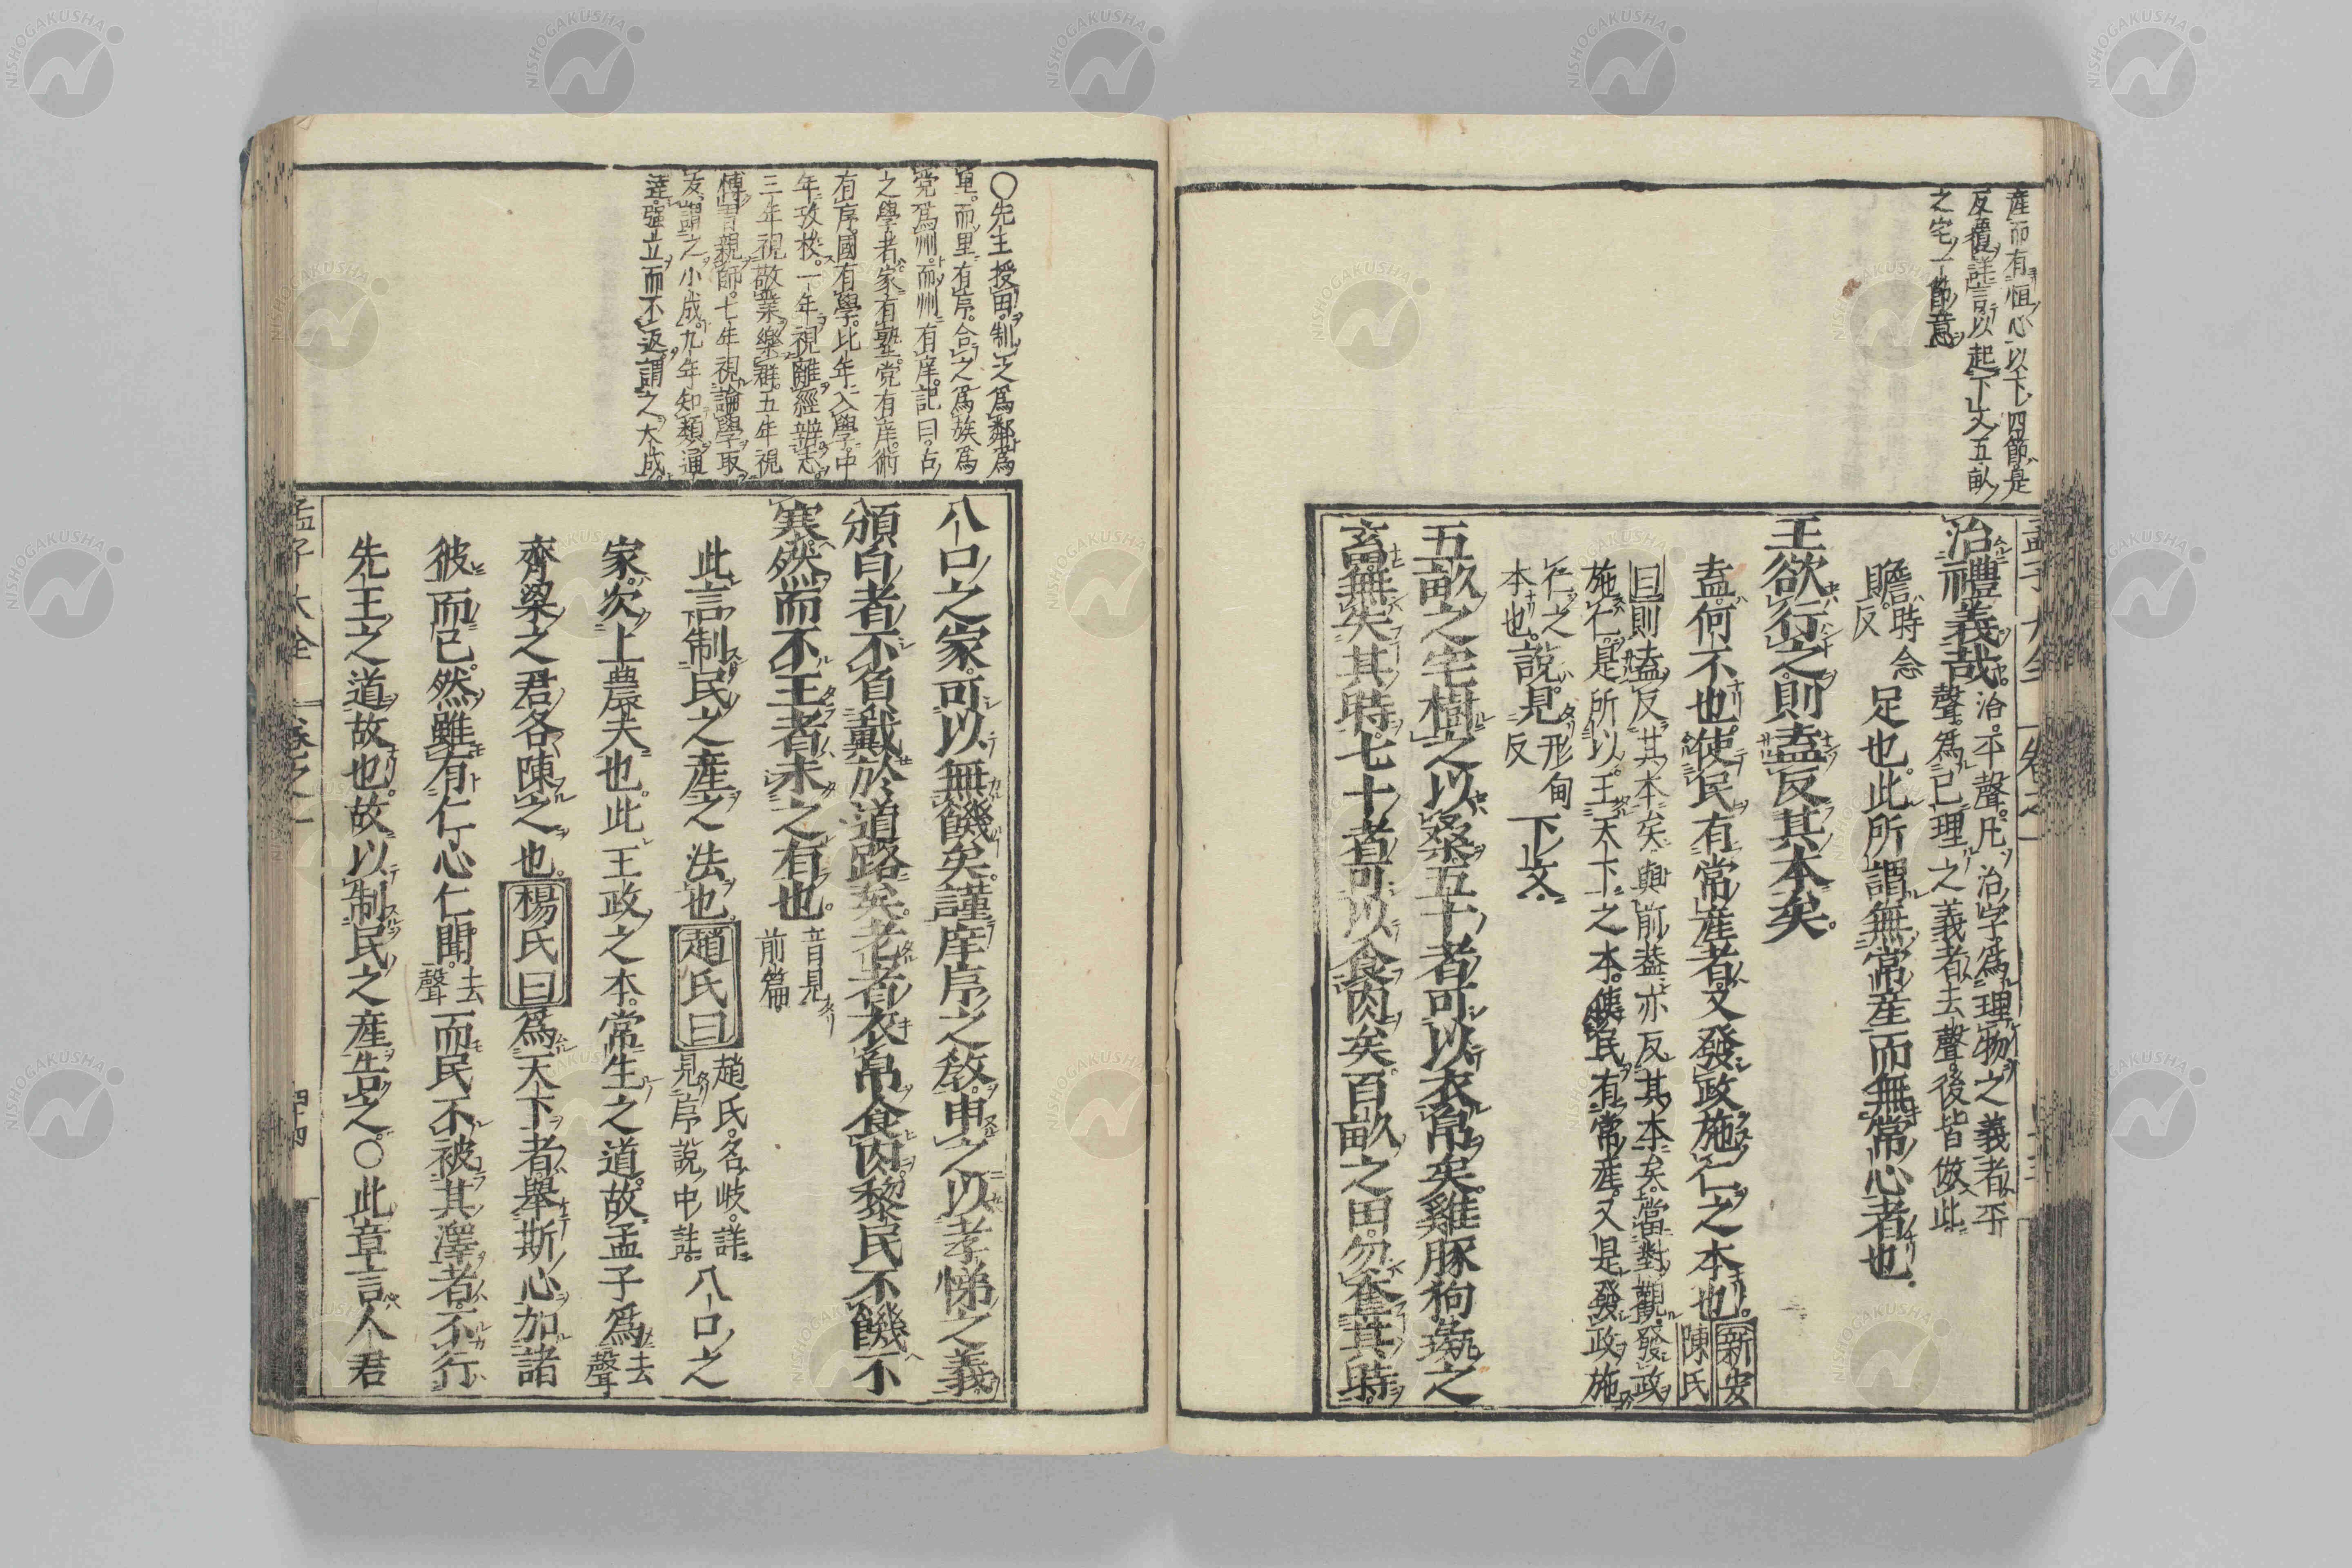 産而有恒心以下四節是
反覆詳言以起下文五畝
之宅一節意
治禮義哉治平聲凡治字為理物之義者平
聲為已理之義者去聲後皆倣此
贍時念反足也此所謂無常産而無常心者也
王欲行之則盍反其本矣
盍何不也使民有常産者又發政施仁之本也新安陳氏
曰則盍反其本矣與前蓋亦反其本矣當對觀發政
施仁是所以王天下之本使民有常産又是發政施
仁之本也說見形甸反下文
五畝之宅樹之以桑五十者可以衣帛矣雞豚狗彘之
畜無失其時七十者可以食肉矣百畝之田勿奪其時
孟子大全 卷之一
○先王授田制之為鄰為
里而里有序合之為族為
党為州而州有庠記曰古
之學者家有塾党有庠術
有序國有學比年入學中
年攷校一年視離經辨志
三年視敬業樂群五年視
博習親師七年視論學取
友謂之小成九年知類通
達強立而不返謂之大成
八口之家可以無饑矣謹庠序之教申之以孝悌之義
頒白者不負戴於道路矣老者衣帛食肉黎民不饑不
寒然而不王者未之有也音見前篇
此言制民之産之法也趙氏曰趙氏名岐詳見序說中註八口之
家次上農夫也此王政之本常生之道故孟子為去聲
齊梁之君各陳之也楊氏曰為天下者舉斯心加諸
彼而已然雖有仁心仁聞去聲而民不被其澤者不行
先王之道故也故以制民之産告之○此章言人君
孟子大全 卷之一 四十四
NISHOGAKUSHA